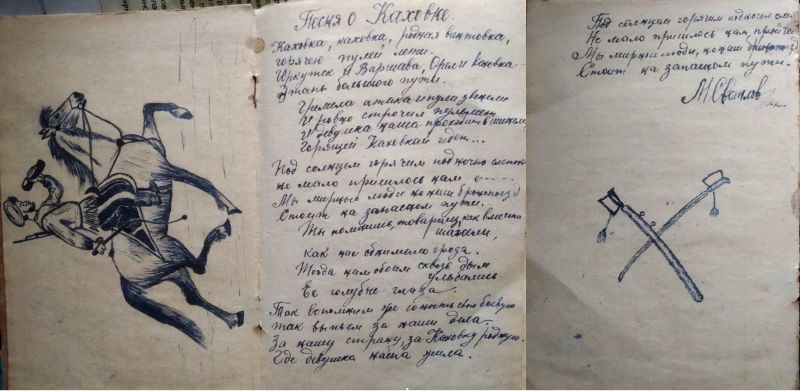 Песня о Каховке.
Каховка, каховка, родная винтовка,
горячею пулей лети.
Иркутск и Варшава, Орел и каховка
Этапы большого пути.
Гремела атака и пули звенели
И ровно строчил пулемет
И девушка наша проходит в шинели
Горящей Каховкой идет...
Под солнцем горячим под ночью слепою
не мало пришлось нам
Мы мирные люди но наш бронепоезд
Стоит на запасном пути.
Ты помнишь, товарищ, как вместе
как нас обнимала гроза.
Тогда нам обоим сквозь дым
улыбались
Ее голубые глаза.
Так вспомним же юность свою боевую
так выпьем за наши дела
За нашу страну, за Каховку родную.
Где девушка наша жила.
Под солнцем горячим под ночью
Не мало пришлось нам пройти
Мы мирные люди, но наш
Стоит на запасном пути.
М. Светлов